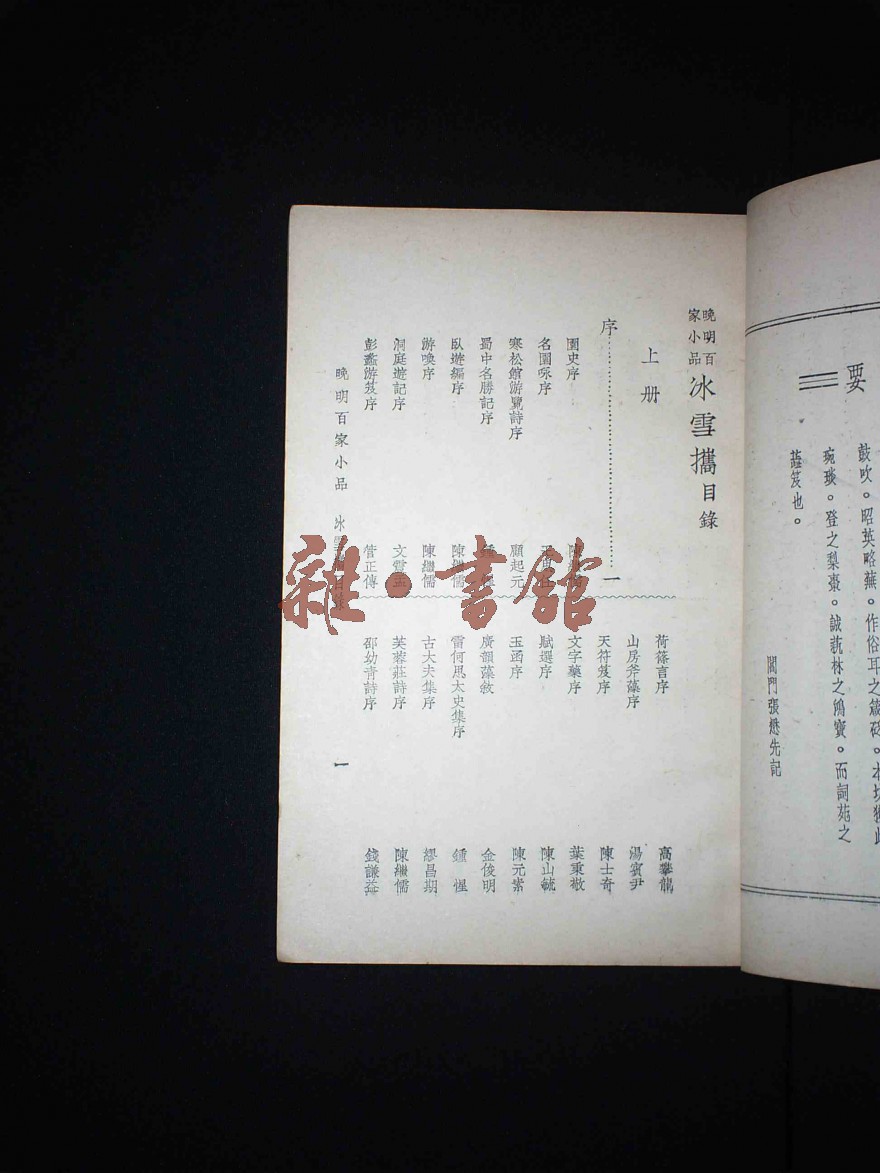 要
鼓吹。昭英略蕪。作俗耳之
琬琰。登之梨棗。誠蓺林之鴻寶。而詞苑之
笈也。
閶門張懋先記
晚明百
家小品
冰雪攜目錄
上册
序……一
園史序 陳繼儒
名園咏序
寒松館游覽詩序 顧起元
蜀中名勝記序 鍾惺
臥遊編序 陳繼儒
游喚序 陳繼儒
洞庭遊記序 文震孟
彭蠡游笈序 管正傳
荷蓧言序 高攀龍
山房斧藻序 湯賓尹
天符笈序 陳士奇
文字藥序 葉秉敬
賦選序 陳山毓
玉函序 陳元素
廣韻藻敘 金俊明
雷何思太史集序 鍾惺
古大夫集序 繆昌期
芙蓉莊詩序 陳繼儒
邵幼青詩序 錢謙益
晚明百家小品 冰雪攜目錄 一
雜·書館